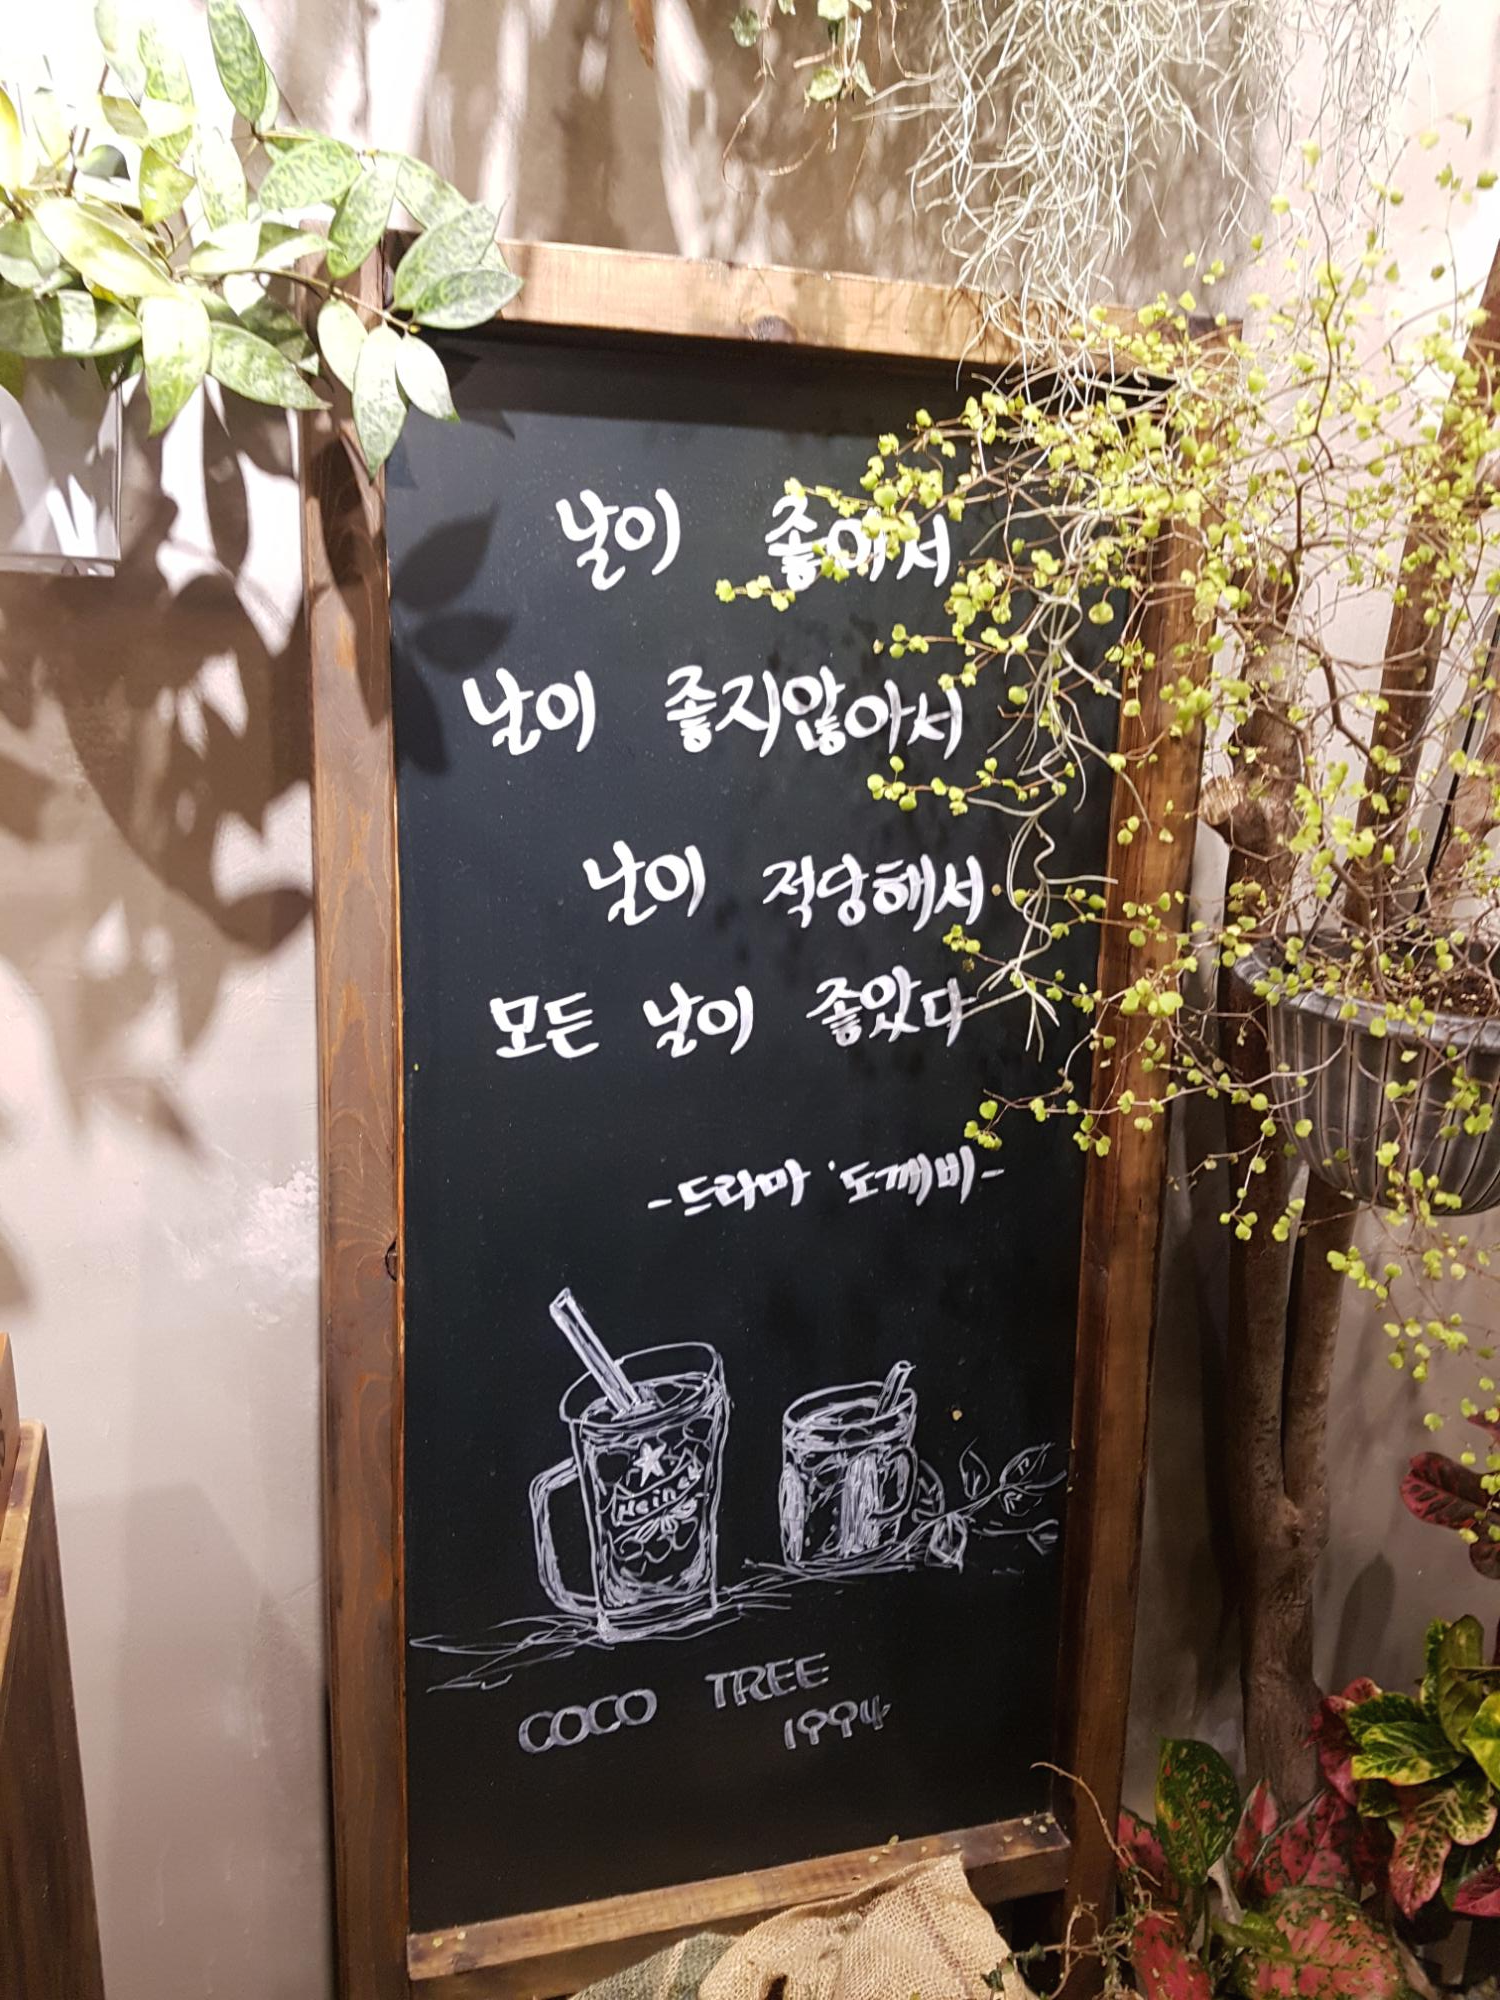 날이 좋아서
날이 좋지않아서
날이 적당해서
모든 날이 좋았다
-드라마 '도깨비-
COCO TREE
1994